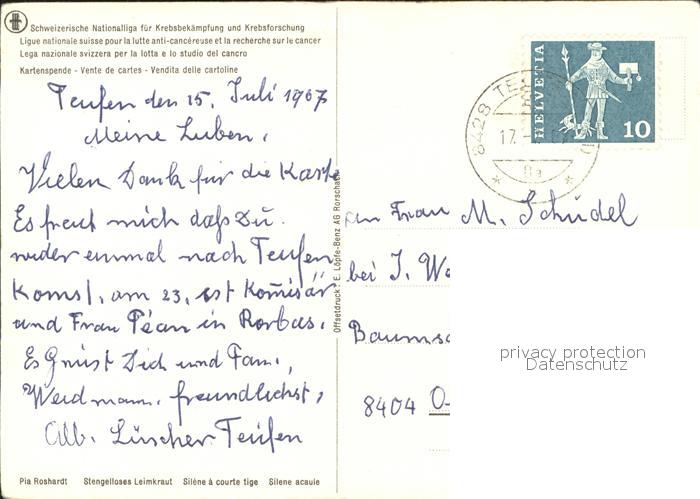 Schweizerische Nationalliga für Krebsbekämpfung und Krebsforschung
Ligue nationale suisse pour la lutte anti-cancéreuse et la recherche sur le cancer
Lega nazionale svizzera per la lotta e lo studio del cancro
Kartenspende - Vente de cartes - Vendita delle cartoline
Teufen den 15. Juli 1967
Meine Lieben,
Vielen Dank für die Karte
Es freut mich daß Du
wieder einmal nach Teufen
Komst, am 23. ist Komisär
und Frau Péan in Rorbas.
Es Grüst Dich und Fam.
Weidmann, freundlichst,
Alb. Lüscher Teufen
Pia Roshardt Stengelloses Leimkraut Silène à courte tige Silene acaule
Offsetdruck: E. Löpfe-Benz AG Rorschach
HELVETIA
10
8428 TE
17.
8a
an Frau M. Schudel
bei J. We
Baumsc
8404 O-
privacy protection
Datenschutz